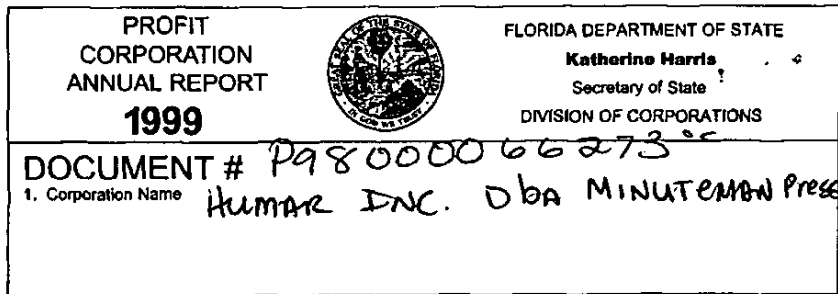 PROFIT
CORPORATION
ANNUAL REPORT
1999
GREAT SEAL OF THE STATE OF FLORIDA
IN GOD WE TRUST
FLORIDA DEPARTMENT OF STATE
Katherine Harris
Secretary of State
DIVISION OF CORPORATIONS
DOCUMENT # P98000066273
1. Corporation Name HUMAR INC. DbA MINUTEMAN Press